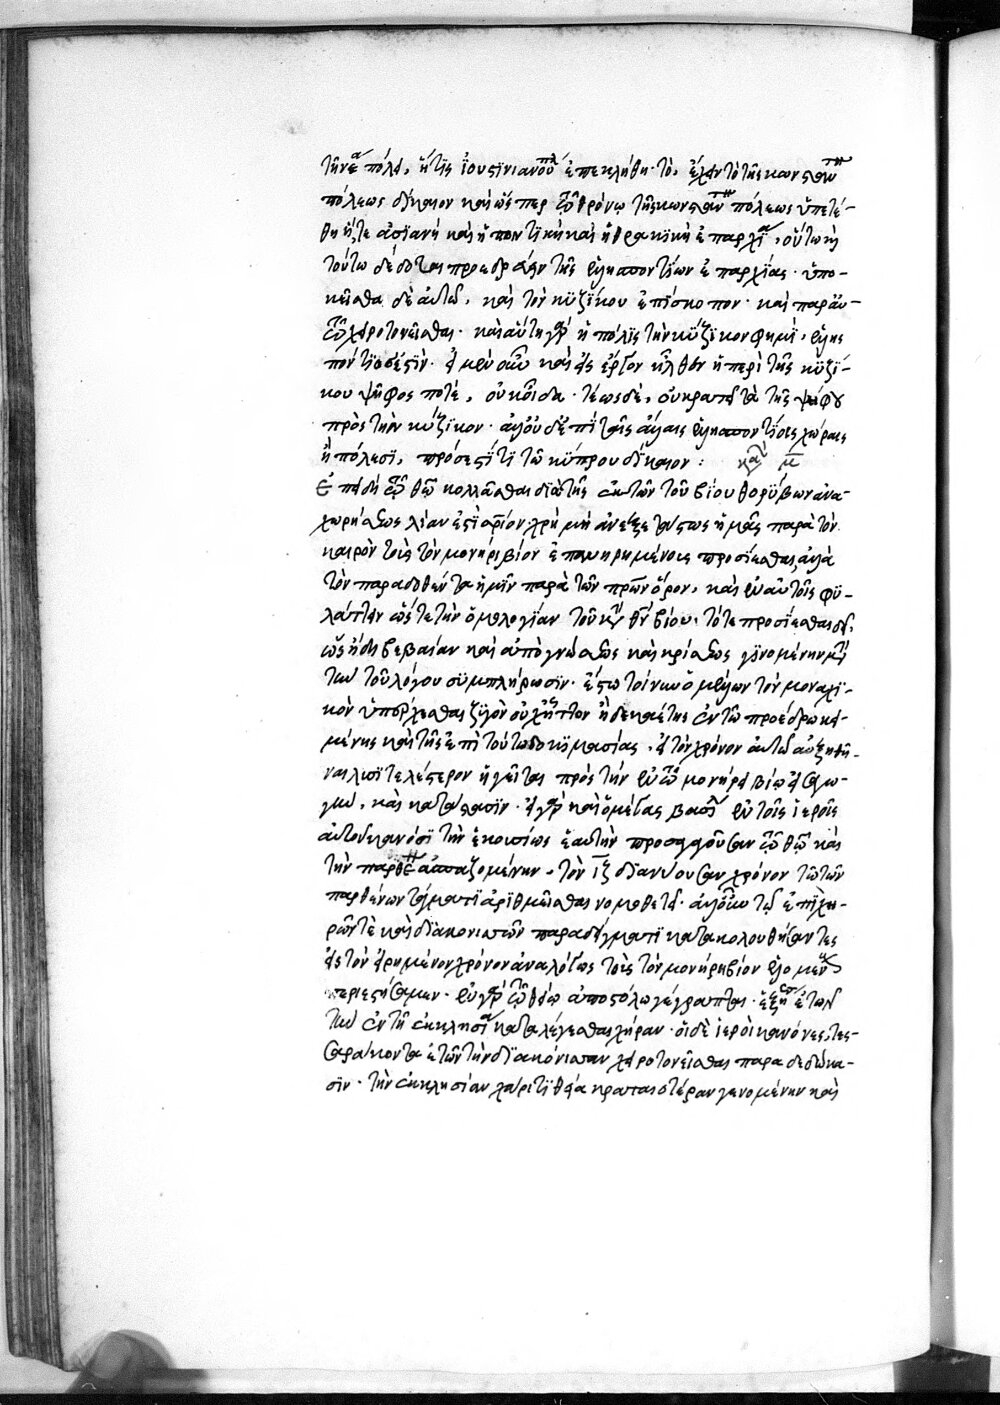 τὴν νέα πόλιν, ἥτις ἰουστινιανούπολις ἐπεκλήθη· τὸ, ἔχειν τὸ τῆς κωνσταντίνου
πόλεως δίκαιον καὶ ὥσπερ τῶ θρόνω τῆς κωνσταντίνου πόλεως ὑπετέ-
θη ἥ, τε ἀσιανὴ καὶ ἡ ποντικὴ καὶ ἡ θρακικὴ ἐπαρχία, οὕτω καὶ
τούτω δέδοται προεδρεύειν τῆς ἑλλησποντίων ἐπαρχίας· ὑπο-
κεῖσθαι δὲ αὐτῶ, καὶ τὸν κυζίκου ἐπίσκοπον· καὶ παρ' αὐ-
τοῦ χειροτονεῖσθαι· καὶ αὐτὴ γὰρ ἡ πόλις τὴν κύζικον φημὶ, ἑλλησ
ποντία ἐστίν· εἰ μὲν οὖν καὶ εἰς ἔργον ἦλθεν ἡ περὶ τῆς κυζί-
κου ψῆφος ποτὲ, οὐκ οἶδα· τέως δὲ, οὐ κρατεῖ τὰ τῆς ψήφου
πρὸς τὴν κύζικον· ἀλλ' οὐδ' ἐπὶ ταῖς ἄλλαις ἑλλησποντίαις χώραις
ἢ πόλεσι, πρόσεστί τι τῶ κύπρου δίκαιον: κα μ
Ἐπειδὴ τῶ θεῶ κολλᾶσθαι διὰ τῆς ἐκ τῶν τοῦ βίου θορύβων ἀνα-
χωρήσεως λίαν ἐστὶ σωτήριον· χρὴ μὴ ἀνεξετάστως ἡμᾶς παρὰ τὸν
καιρὸν τοὺς τὸν μονήρη βίον ἐπανηρημένους προσίεσθαι, ἀλλὰ
τὸν παραδοθέντα ἡμῖν παρὰ τῶν πατέρων ὅρον, καὶ ἐν αὐτοῖς φυ-
λάττειν ὥστε τὴν ὁμολογίαν τοῦ κατὰ θεὸν βίου, τότε προσίεσθαι δεῖ,
ὡς ἤδη βεβαίαν καὶ ἀπὸ γνώσεως καὶ κρίσεως γινομένην μετὰ
τὴν τοῦ λόγου συμπλήρωσιν· ἔστω τοίνυν ὁ μέλλων τὸν μοναχι-
κὸν ὑπέρχεσθαι ζυγὸν οὐχ ἧττον ἢ δεκαέτης ἐν τῶ προέδρω κει-
μένης καὶ τῆς ἐπὶ τούτω δοκιμασίας, εἰ τὸν χρόνον αὐτῶ αὐξηθῆ-
ναι λυσιτελέστερον ἡγεῖται πρὸς τὴν ἐν τῶ μονήρει βίω εἰσαγω-
γὴν, καὶ κατάστασιν· εἰ γὰρ καὶ ὁ μέγας βασίλειος ἐν τοῖς ἱεροῖς
αὐτοῦ κανόσι τὴν ἑκουσίως ἑαυτὴν προσαγοῦσαν τῶ θεῶ καὶ
τὴν παρθενίαν ἀσπαζομένην, τὸν ιζ διανύουσαν χρόνον τῶ τῶν
παρθένων τάγματι ἀριθμεῖσθαι νομοθετεῖ· ἀλλ' οὖν τῶ ἐπὶ χη-
ρῶν τε καὶ διακονισσῶν παραδείγματι κατακολουθήσαντες
εἰς τὸν εἰρημένον χρόνον ἀναλόγως τοὺς τὸν μονήρη βίον ἑλομένους
περιεστήσαμεν· ἐν γὰρ τῶ θείω ἀποστόλω γέγραπται· ἑξήκοντα ἐτῶν
τὴν ἐν τῆ ἐκκλησία καταλέγεσθαι χήραν· οἱ δὲ ἱεροὶ κανόνες, τεσ-
σαράκοντα ἐτῶν τὴν διακόνισσαν χειροτονεῖσθαι παραδεδώκα-
σιν· τὴν ἐκκλησίαν χάριτι θεία κραταιοτέραν γενομένην καὶ